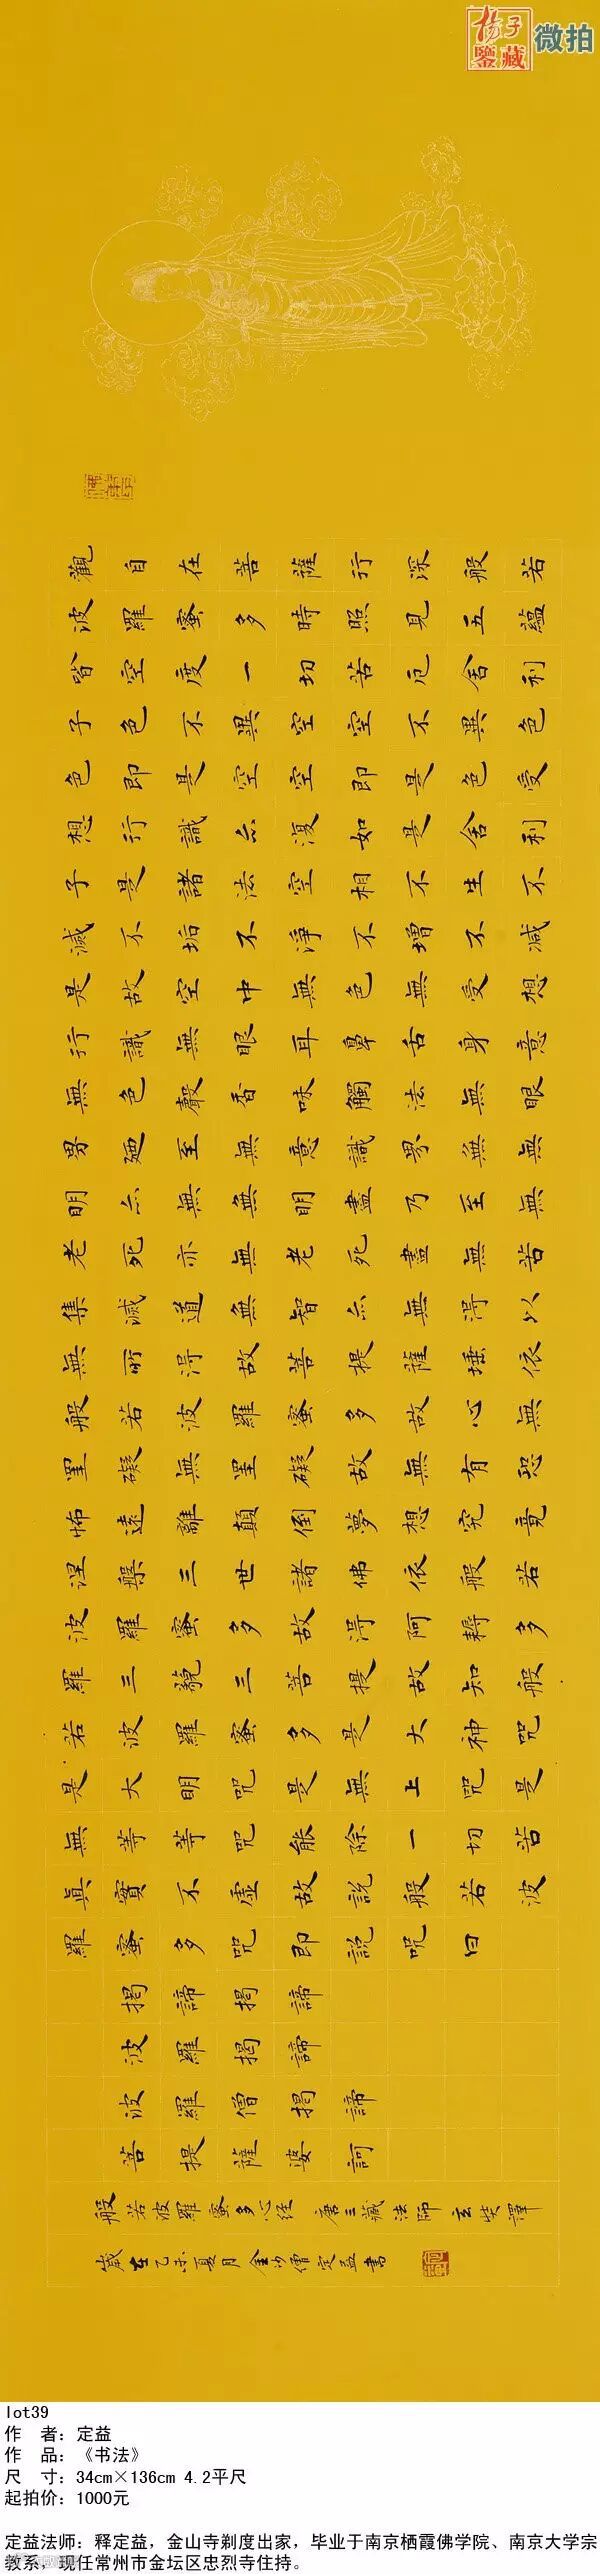 杨子
鑒藏
微拍
觀自在菩薩行深般若
波羅蜜多時照見五蘊
皆空度一切苦厄舍利
子色不異空空不異色
色即是空空即是色受
想行識亦復如是舍利
子是諸法空相不生不
滅不垢不淨不增不減
是故空中無色無受想
行識無眼耳鼻舌身意
無色聲香味觸法無眼
界廼至無意識界無無
明亦無無明盡乃至無
老死亦無老死盡無苦
集滅道無智亦無得以
無所得故菩提薩埵依
般若波羅蜜多故心無
罣礙無罣礙故無有恐
怖遠離顛倒夢想究竟
涅槃三世諸佛依般若
波羅蜜多故得阿耨多
羅三藐三菩提故知般
若波羅蜜多是大神咒
是大明咒是無上咒是
無等等咒能除一切苦
真實不虛故說般若波
羅蜜多咒即說咒曰
揭諦揭諦
波羅揭諦
波羅僧揭諦
菩提薩婆訶
般若波羅蜜多心経 唐三藏法師玄奘譯
歲在乙未夏月金沙僧定益書
lot39
作 者：定益
作 品：《书法》
尺 寸：34cm×136cm 4.2平尺
起拍价：1000元
定益法师：释定益，金山寺剃度出家，毕业于南京栖霞佛学院、南京大学宗
教系，现任常州市金坛区忠烈寺住持。